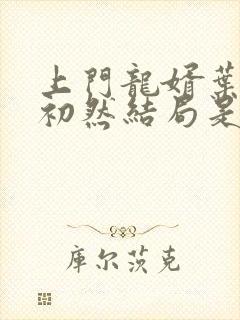 上門龍婿葉
初然結局是
庫尔茨克